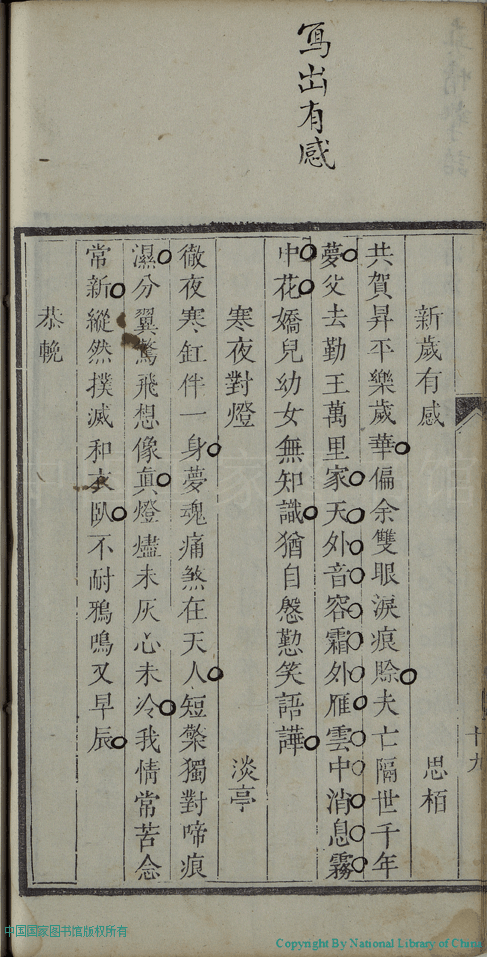 寫出有感
十九
新歲有感　思栢
共賀昇平樂歲華偏余雙眼淚痕賒夫亡隔世千年
夢父去勤王萬里家天外音容霜外雁雲中消息霧
中花嬌兒幼女無知識猶自慇懃笑語譁
寒夜對燈　淡亭
徹夜寒釭伴一身夢魂痛煞在天人短檠獨對啼痕
濕分翼驚飛想像真燈燼未灰心未冷我情常苦念
常新縱然撲滅和衣臥不耐鴉鳴又早辰
恭輓
中国国家图书馆版权所有
Copyright By National Library of China